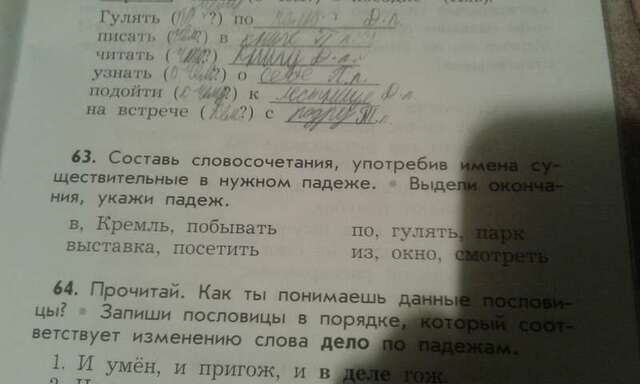 Гулять ( ?) по Д.п.
писать ( ?) в книге П.п.
читать ( ?) книгу
узнать (о чём?) о П.п.
подойти (к чему?) к лестнице Д.п.
на встрече ( ?) с
63. Составь словосочетания, употребив имена су-
ществительные в нужном падеже. • Выдели оконча-
ния, укажи падеж.
в, Кремль, побывать по, гулять, парк
выставка, посетить из, окно, смотреть
64. Прочитай. Как ты понимаешь данные послови-
цы? • Запиши пословицы в порядке, который соот-
ветствует изменению слова дело по падежам.
1. И умён, и пригож, и в деле гож